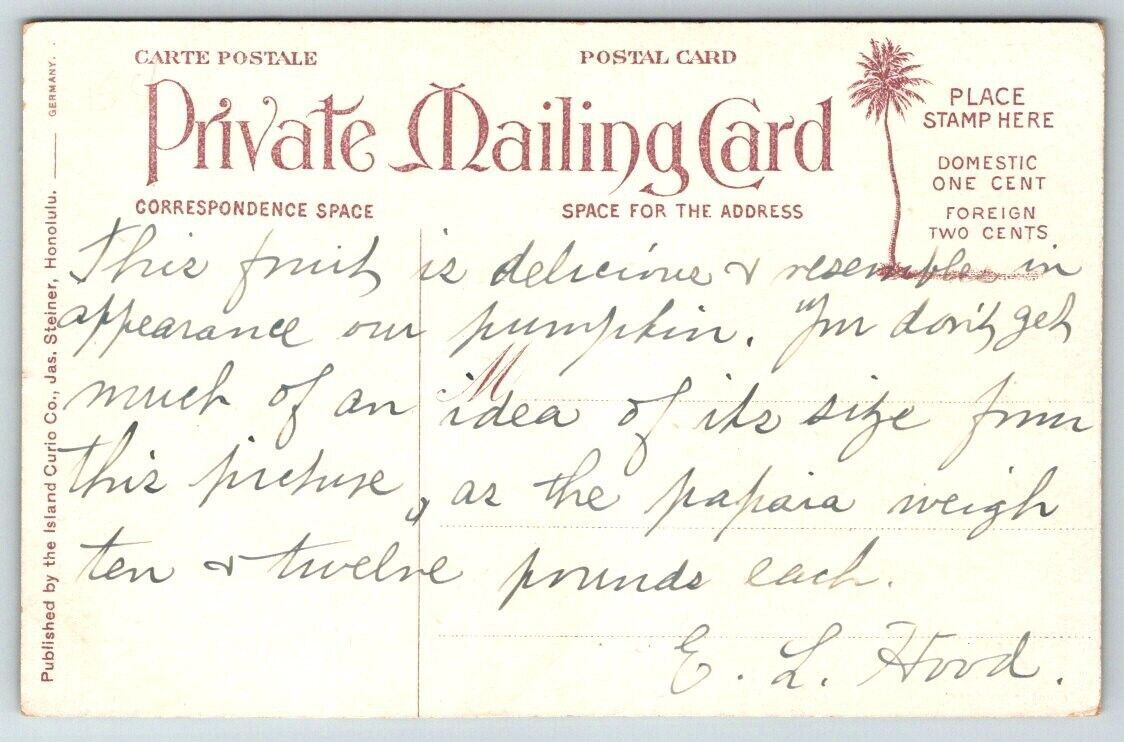 CARTE POSTALE
POSTAL CARD
Private Mailing Card
PLACE
STAMP HERE
DOMESTIC
ONE CENT
FOREIGN
TWO CENTS
CORRESPONDENCE SPACE
SPACE FOR THE ADDRESS
This fruit is delicious & resembles in
appearance our pumpkin. You don't get
M
much of an idea of its size from
this picture, as the papaia weigh
ten & twelve pounds each.
E. L. Hood.
Published by the Island Curio Co., Jas. Steiner, Honolulu. GERMANY.